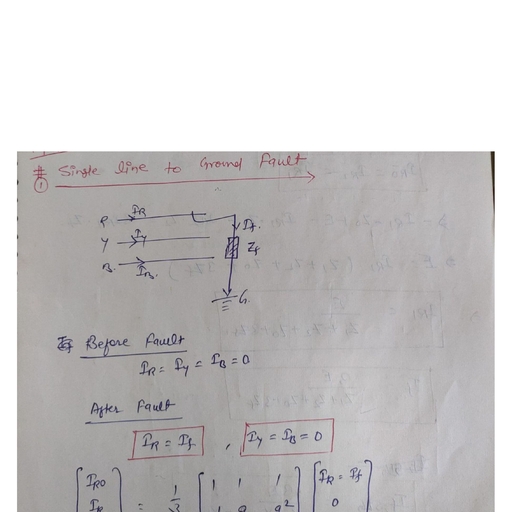 # Single line to Ground Fault
①
R IR
Y IY If. Zf
B. IB.
G.
Before Fault
IR = IY = IB = 0
After Fault
IR = If , IY = IB = 0
[IR0 1/3 [1 1 1 [IR = If
IR = 1 a a² 0